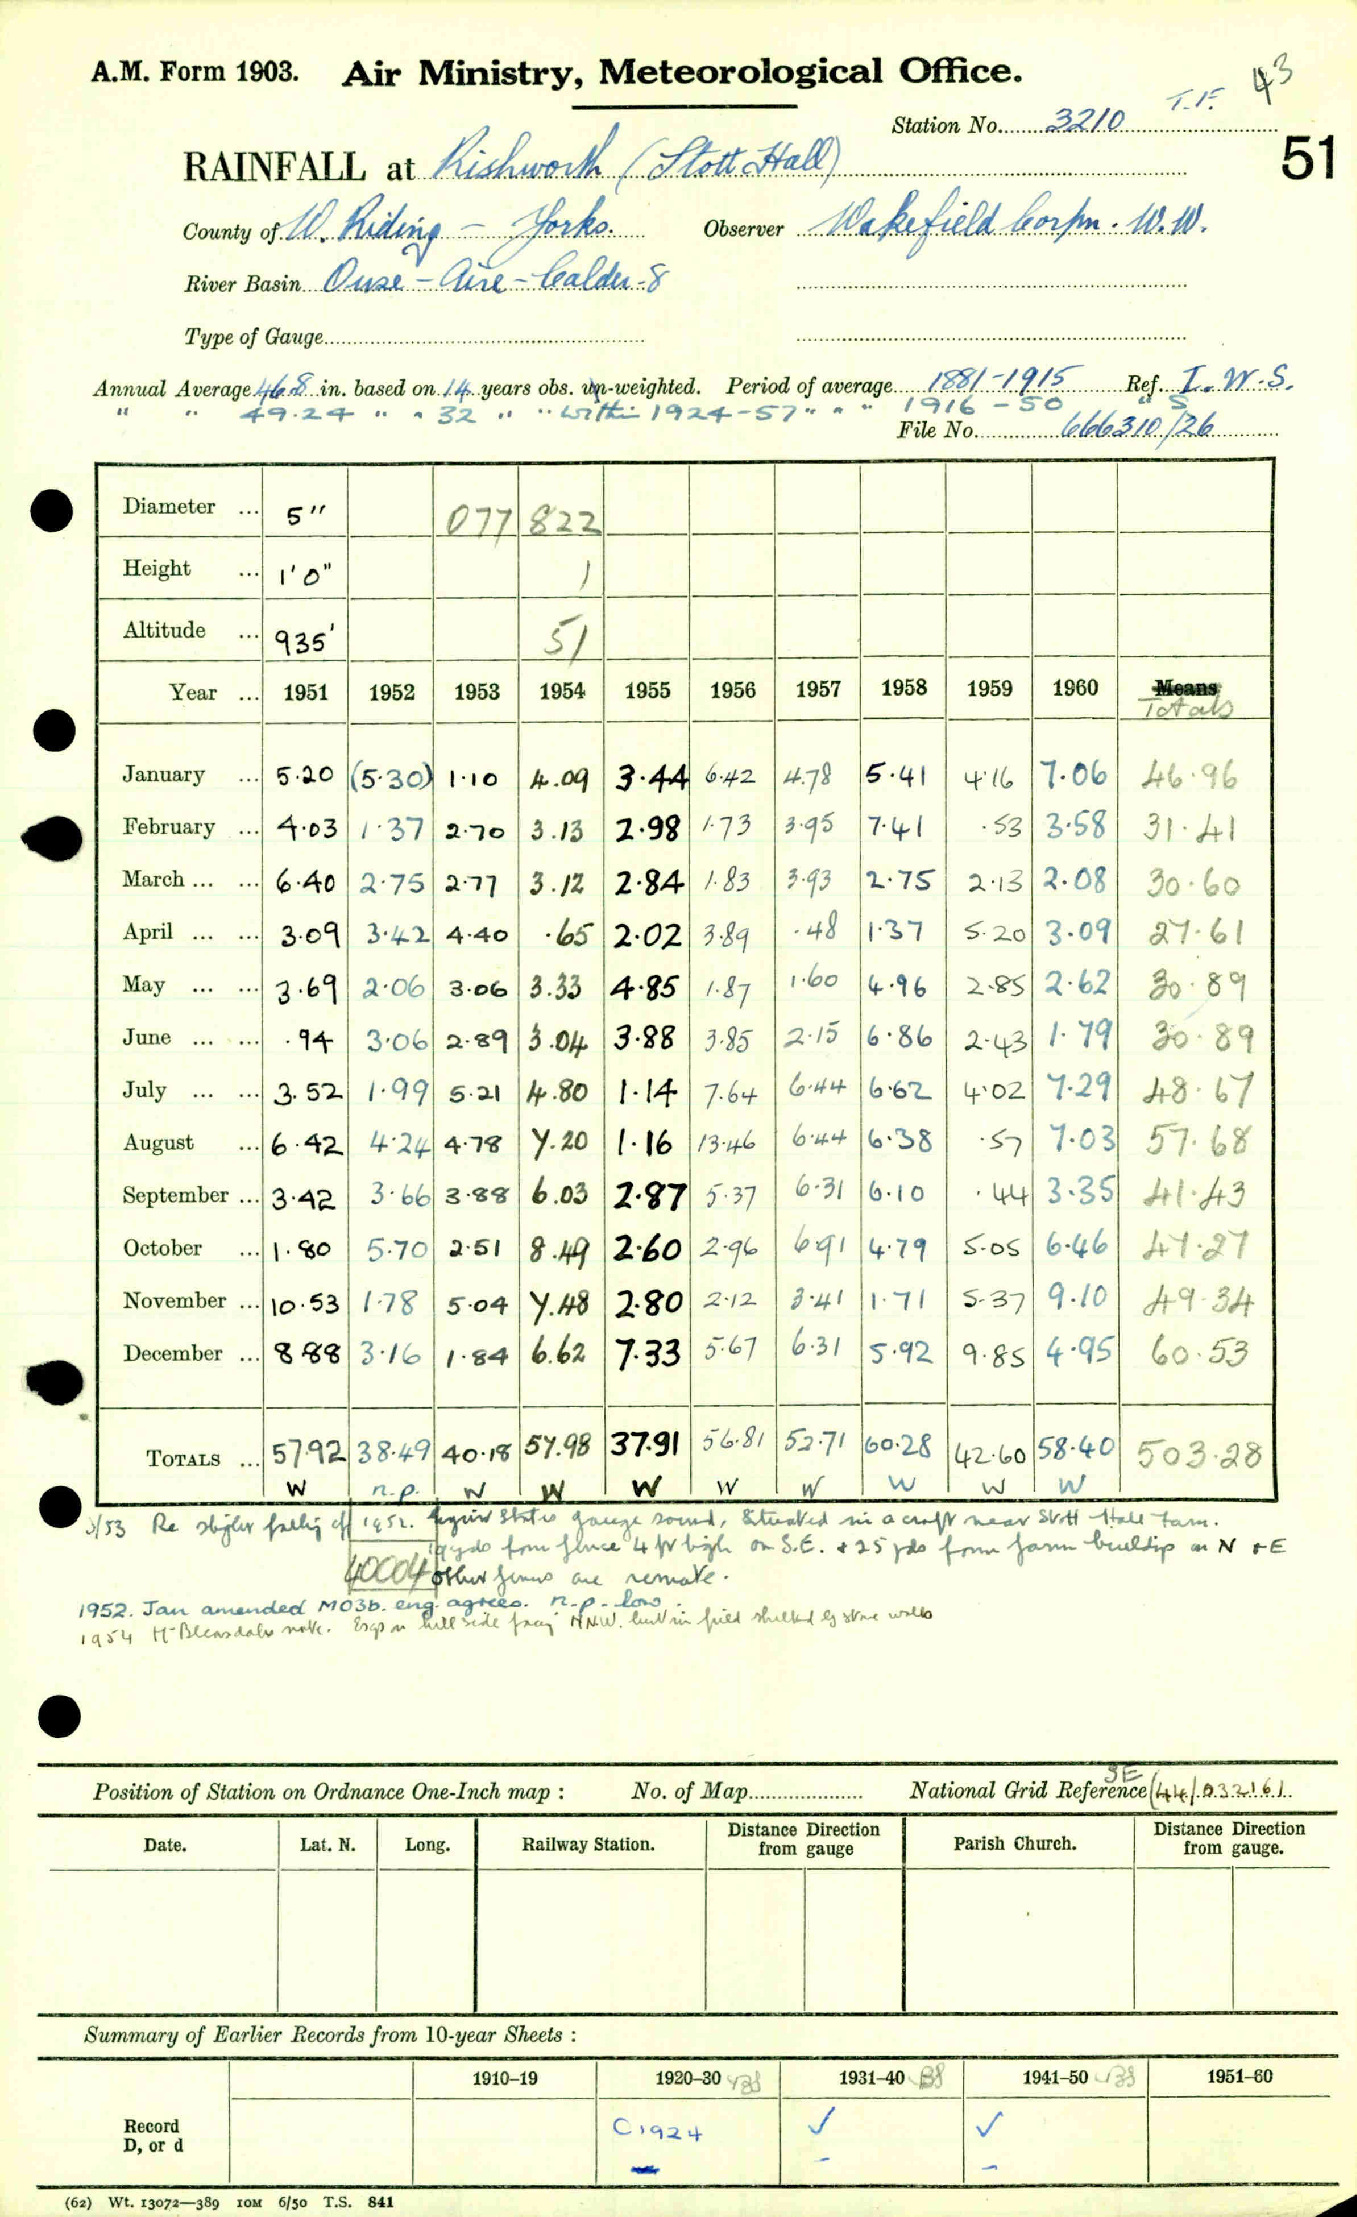 A.M. Form 1903. Air Ministry, Meteorological Office. 43
Station No. 3210 T.F.
51
RAINFALL at Rishworth (Stott Hall)
County of W. Riding - Yorks. Observer Wakefield Corpn. W.W.
River Basin Ouse - Aire - Calder - 8
Type of Gauge
Annual Average 46.8 in. based on 14 years obs. un-weighted. Period of average 1881-1915 Ref. I.W.S.
" " 49.24 " " 32 " " within 1924-57 " " " 1916-50 " S
File No. 666310/26
Diameter ... 5" 077 822
Height ... 1'0" 1
Altitude ... 935' 51
Year ... 1951 1952 1953 1954 1955 1956 1957 1958 1959 1960 Means
Totals
January ... 5.20 (5.30) 1.10 4.09 3.44 6.42 4.78 5.41 4.16 7.06 46.96
February ... 4.03 1.37 2.70 3.13 2.98 1.73 3.95 7.41 .53 3.58 31.41
March ... ... 6.40 2.75 2.77 3.12 2.84 1.83 3.93 2.75 2.13 2.08 30.60
April ... ... 3.09 3.42 4.40 .65 2.02 3.89 .48 1.37 5.20 3.09 27.61
May ... ... 3.69 2.06 3.06 3.33 4.85 1.87 1.60 4.96 2.85 2.62 30.89
June ... ... .94 3.06 2.89 3.04 3.88 3.85 2.15 6.86 2.43 1.79 30.89
July ... ... 3.52 1.99 5.21 4.80 1.14 7.64 6.44 6.62 4.02 7.29 48.67
August ... 6.42 4.24 4.78 7.20 1.16 13.46 6.44 6.38 .57 7.03 57.68
September ... 3.42 3.66 3.88 6.03 2.87 5.37 6.31 6.10 .44 3.35 41.43
October ... 1.80 5.70 2.51 8.49 2.60 2.96 6.91 4.79 5.05 6.46 47.27
November ... 10.53 1.78 5.04 7.48 2.80 2.12 3.41 1.71 5.37 9.10 49.34
December ... 8.88 3.16 1.84 6.62 7.33 5.67 6.31 5.92 9.85 4.95 60.53
TOTALS ... 57.92 38.49 40.18 57.98 37.91 56.81 52.71 60.28 42.60 58.40 503.28
W n.p. W W W W W W W W
3/53 Re slight falling off 1952. states gauge sound, situated in a croft near Stott Hall Farm.
19 yds from fence 4 ft high on S.E. + 25 yds from farm buildip on N + E
40004 other fences are remote.
1952. Jan amended MO3b. eng. agrees. n.p. low.
1954 Mr Bleasdale's note. on hill side facing NNW. but in field sheltered by stone walls
Position of Station on Ordnance One-Inch map : No. of Map National Grid Reference SE (44) 032161
Date. Lat. N. Long. Railway Station. Distance from gauge Direction Parish Church. Distance from gauge. Direction
Summary of Earlier Records from 10-year Sheets :
1910-19 1920-30 1931-40 1941-50 1951-60
Record D, or d C1924 ✓ ✓
(62) Wt. 13072—389 10M 6/50 T.S. 841